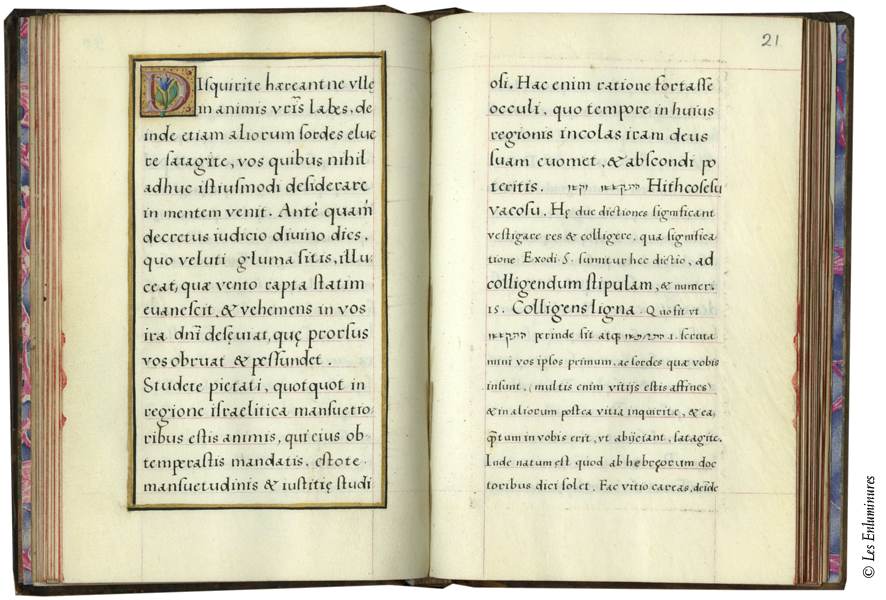 DIsquirite hæreantne vllę
in animis vr̃is labes, de
inde etiam aliorum sordes elue
re satagite, vos quibus nihil
adhuc istiusmodi desiderare
in mentem venit. Ante quam̃
decretus iudicio divino dies,
quo veluti gluma sitis, illu-
ceat, quæ vento rapta statim
evanescit, & vehemens in vos
ira dñi desęviat, quę prorsus
vos obruat & pessundet.
Studete pietati, quotquot in
regione israelitica mansuetio-
ribus estis animis, qui eius ob-
temperastis mandatis, estote
mansuetudinis & iustitię studi
21
osi. Hac enim ratione fortasse
occuli, quo tempore in huius
regionis incolas iram deus
suam evomet, & abscondi po
teritis. Hithcosesu
vacosu. Hę due dictiones significant
vestigare res & colligere, qua significa
tione Exodi. 5. sumitur hec dictio, ad
colligendum stipulam, & numer.
15. Colligens ligna. Quo fit vt
perinde sit atq; .i. scruta
mini vos ipsos primum, ac sordes quæ vobis
insunt, (multis enim vitijs estis affines)
& in aliorum postea vitia inquirite, & ea,
q̃tum in vobis erit, vt abijciant, satagite.
Inde natum ęst quod ab hebręorum doc
toribus dici solet. Fac vitio careas, deinde
© Les Enluminures